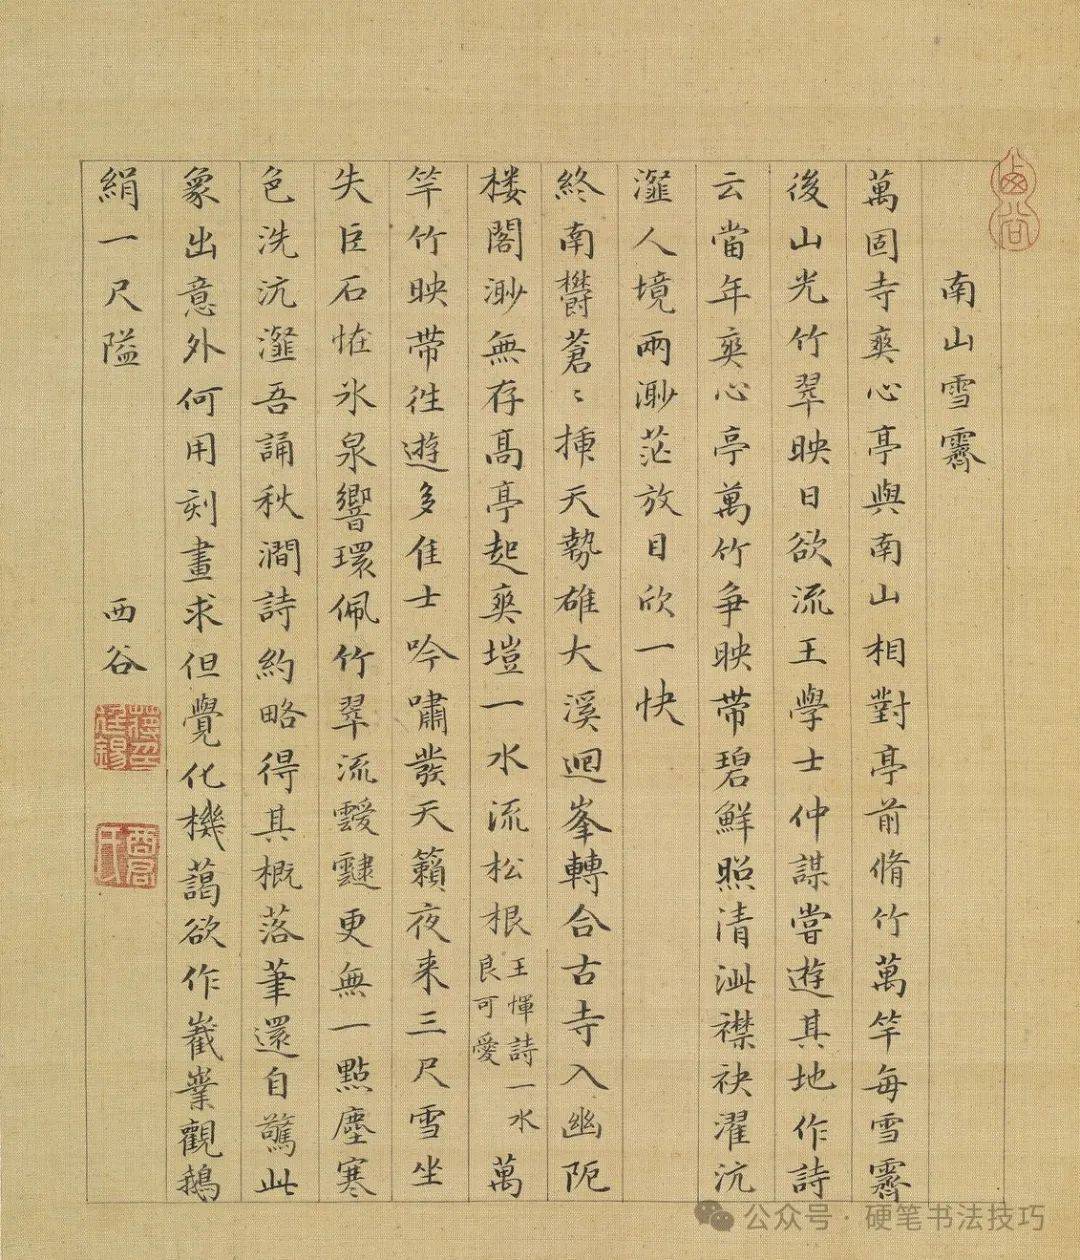 南山雪霽
萬固寺爽心亭與南山相對亭前脩竹萬竿每雪霽
後山光竹翠映日欲流王學士仲謀嘗遊其地作詩
云當年爽心亭萬竹爭映帶碧鮮照清泚襟袂濯沆
瀣人境兩渺茫放目欣一快
終南欝蒼〻揷天勢雄大溪迴峯轉合古寺入幽阨
楼閣渺無存髙亭起爽塏一水流松根王惲詩一水良可愛萬
竿竹映帶徃遊多佳士吟嘯發天籟夜来三尺雪坐
失巨石恠氷泉響環佩竹翠流靉靆更無一點塵寒
色洗沆瀣吾誦秋澗詩約略得其概落筆還自驚此
象出意外何用刻畫求但覺化機藹欲作嶻嶪觀鵝
絹一尺隘
西谷
公众号·硬笔书法技巧